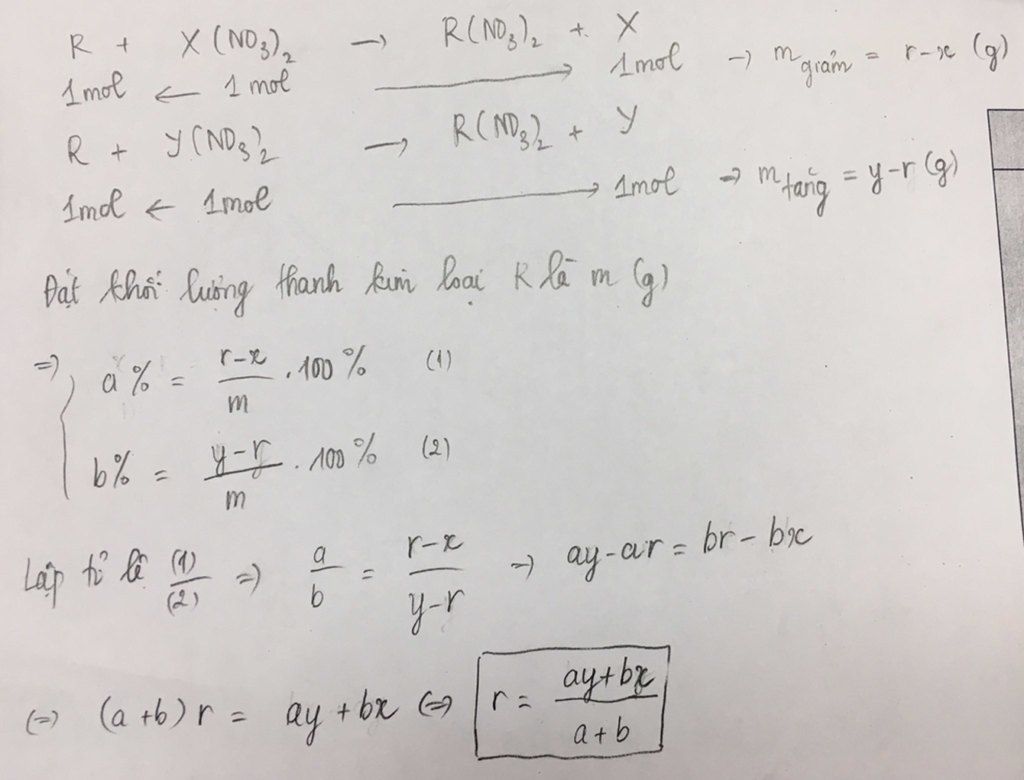 R + X(NO₃)₂ → R(NO₃)₂ + X
1mol ← 1 mol → 1mol → m giảm = r-x (g)
R + Y(NO₃)₂ → R(NO₃)₂ + Y
1mol ← 1mol → 1mol → m tăng = y-r (g)
Đặt khối lượng thanh kim loại R là m (g)
=> { a% = (r-x)/m . 100% (1)
b% = (y-r)/m . 100% (2)
Lập tỉ lệ (1)/(2) => a/b = (r-x)/(y-r) → ay-ar = br-bx
(=) (a+b)r = ay+bx (=) r = (ay+bx)/(a+b)